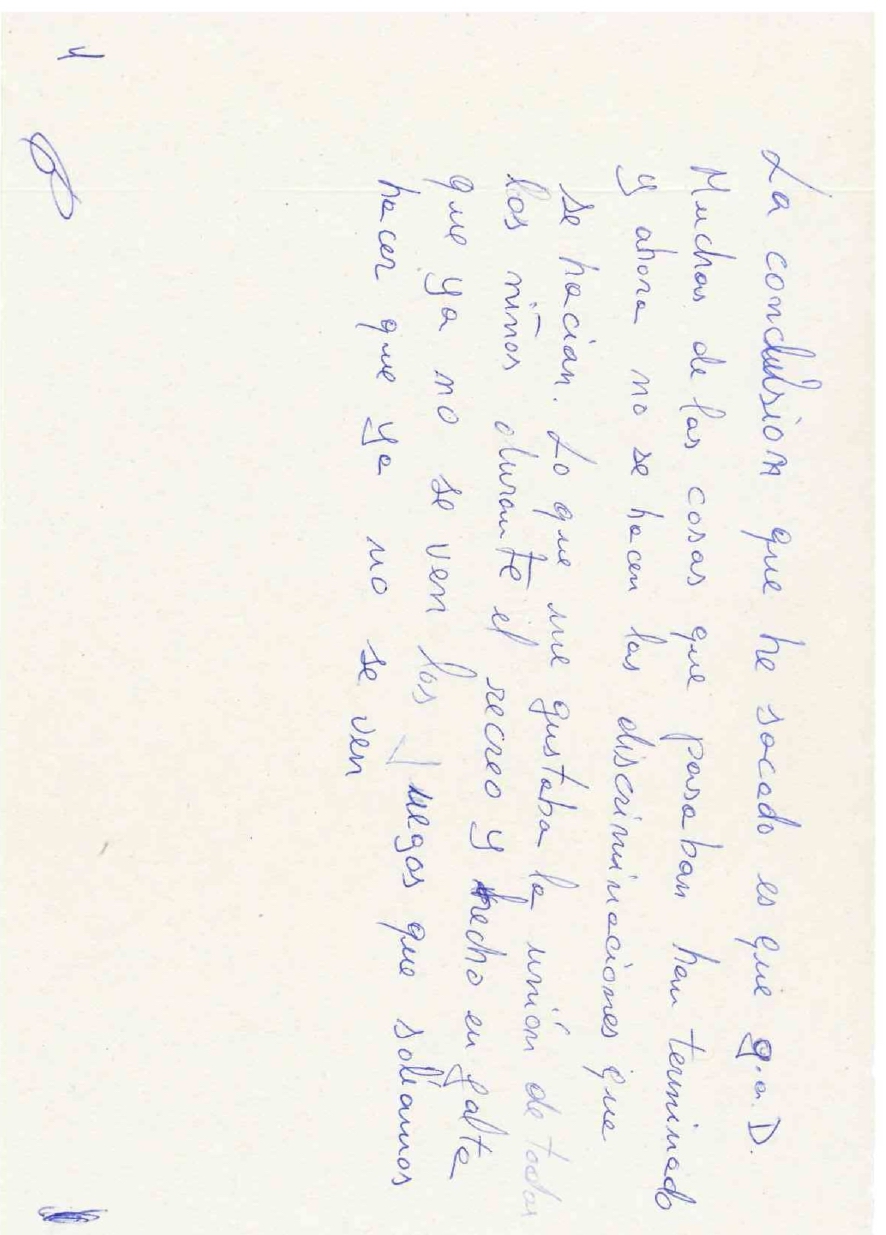 La conclusion que he sacado es que g.a.D.
Muchas de las cosas que pasaban han terminado
y ahora no se hacen las discriminaciones que
se hacian. Lo que me gustaba la unión de todos
los niños durante el recreo y hecho en falta
que ya no se ven los juegos que solíamos
hacer que ya no se ven